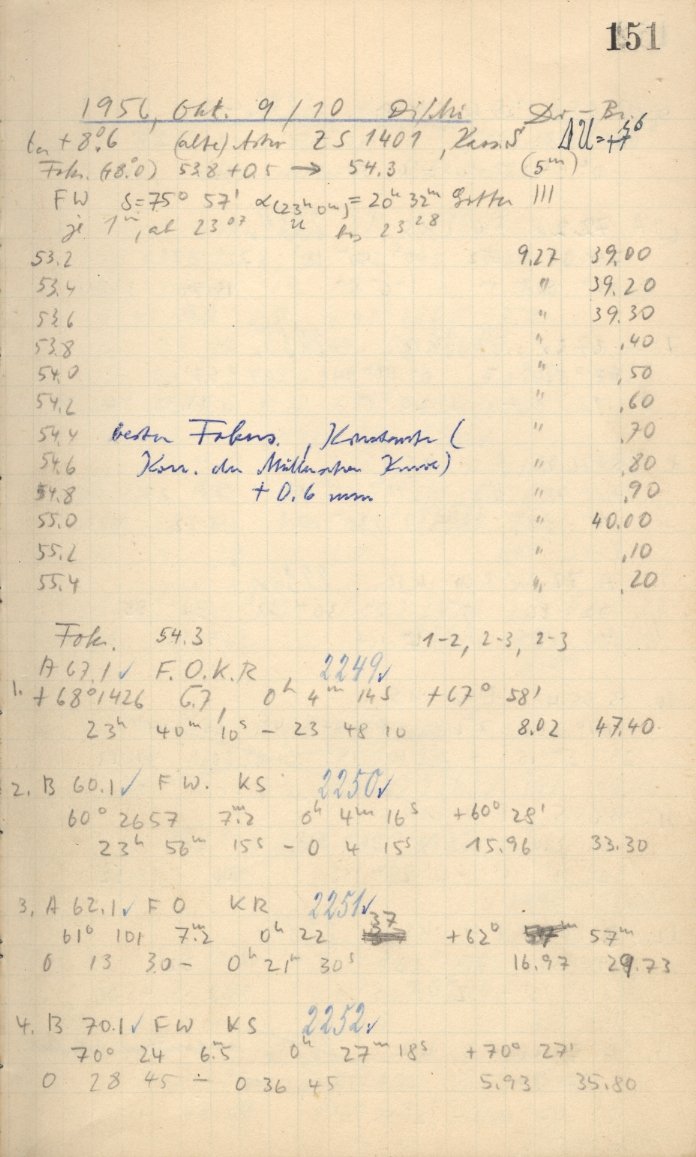 151
1956, Okt. 9/10 Di/Mi Dr-Br.
+8°.6 (alte) Astro ZS 1401, Kass. ΔU=
Fok. (+8°.0) 53.8 + 0.5 → 54.3 (5ᵐ)
FW δ=75° 57' α(23ʰ0ᵐ)=20ʰ 32ᵐ Gitter III
je 1ᵐ, ab 23⁰⁷ bis 23²⁸
53.2 9.27 39.00
53.4 " 39.20
53.6 " 39.30
53.8 " .40
54.0 " .50
54.2 " .60
54.4 bester Fokus., ( " .70
54.6 Korr. der Kurve) " .80
54.8 + 0.6 mm " .90
55.0 " 40.00
55.2 " .10
55.4 " .20
Fok. 54.3 1-2, 2-3, 2-3
A 67.1 ✓ F.O.K.R 2249 ✓
1. +68°1426 6.7 0ʰ 4ᵐ 14ˢ +67° 58'
23ʰ 40ᵐ 10ˢ - 23 48 10 8.02 47.40
2. B 60.1 ✓ F W. KS 2250 ✓
60° 2657 7ᵐ.2 0ʰ 4ᵐ 16ˢ +60° 28'
23ʰ 56ᵐ 15ˢ - 0 4 15ˢ 15.96 33.30
3. A 62.1 ✓ F O KR 2251 ✓
61° 101 7ᵐ.2 0ʰ 22 37 +62° 57ᵐ
0 13 30 - 0ʰ 21ᵐ 30ˢ 16.97 29.73
4. B 70.1 ✓ FW KS 2252 ✓
70° 24 6ᵐ.5 0ʰ 27ᵐ 18ˢ +70° 27'
0 28 45 - 0 36 45 5.93 35.80